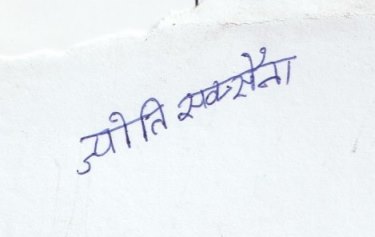 ज्योति सक्सैना